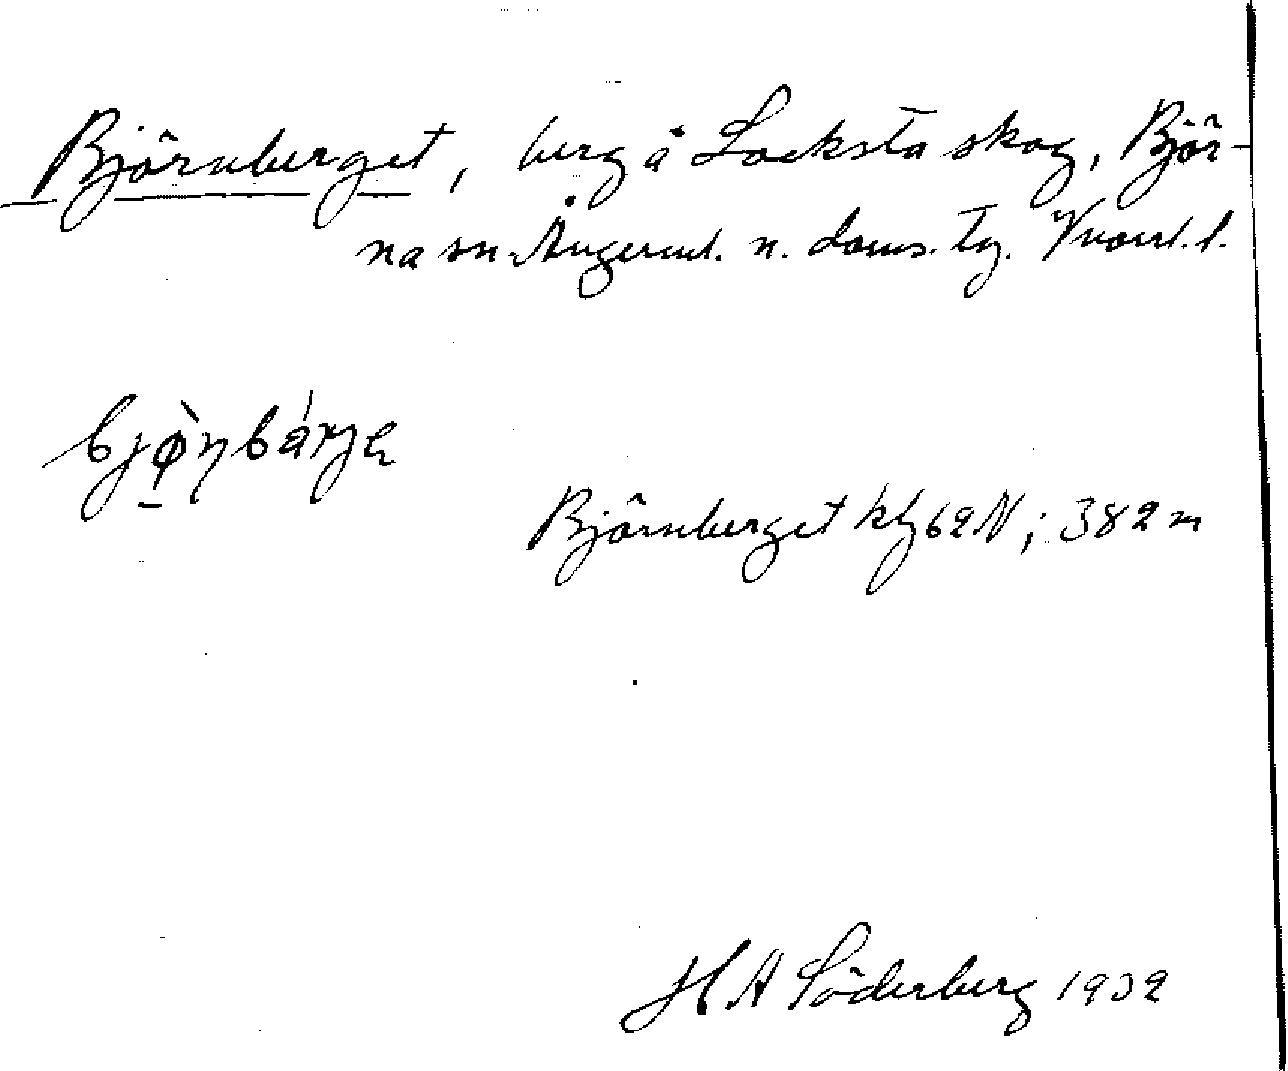 Björnberget, berg å Locksta skog, Björ-
na sn. Ångerml. n. doms. tg. Vnorrl. l.
Björnberget kbl 62 N; 382 m
H A Söderberg 1932